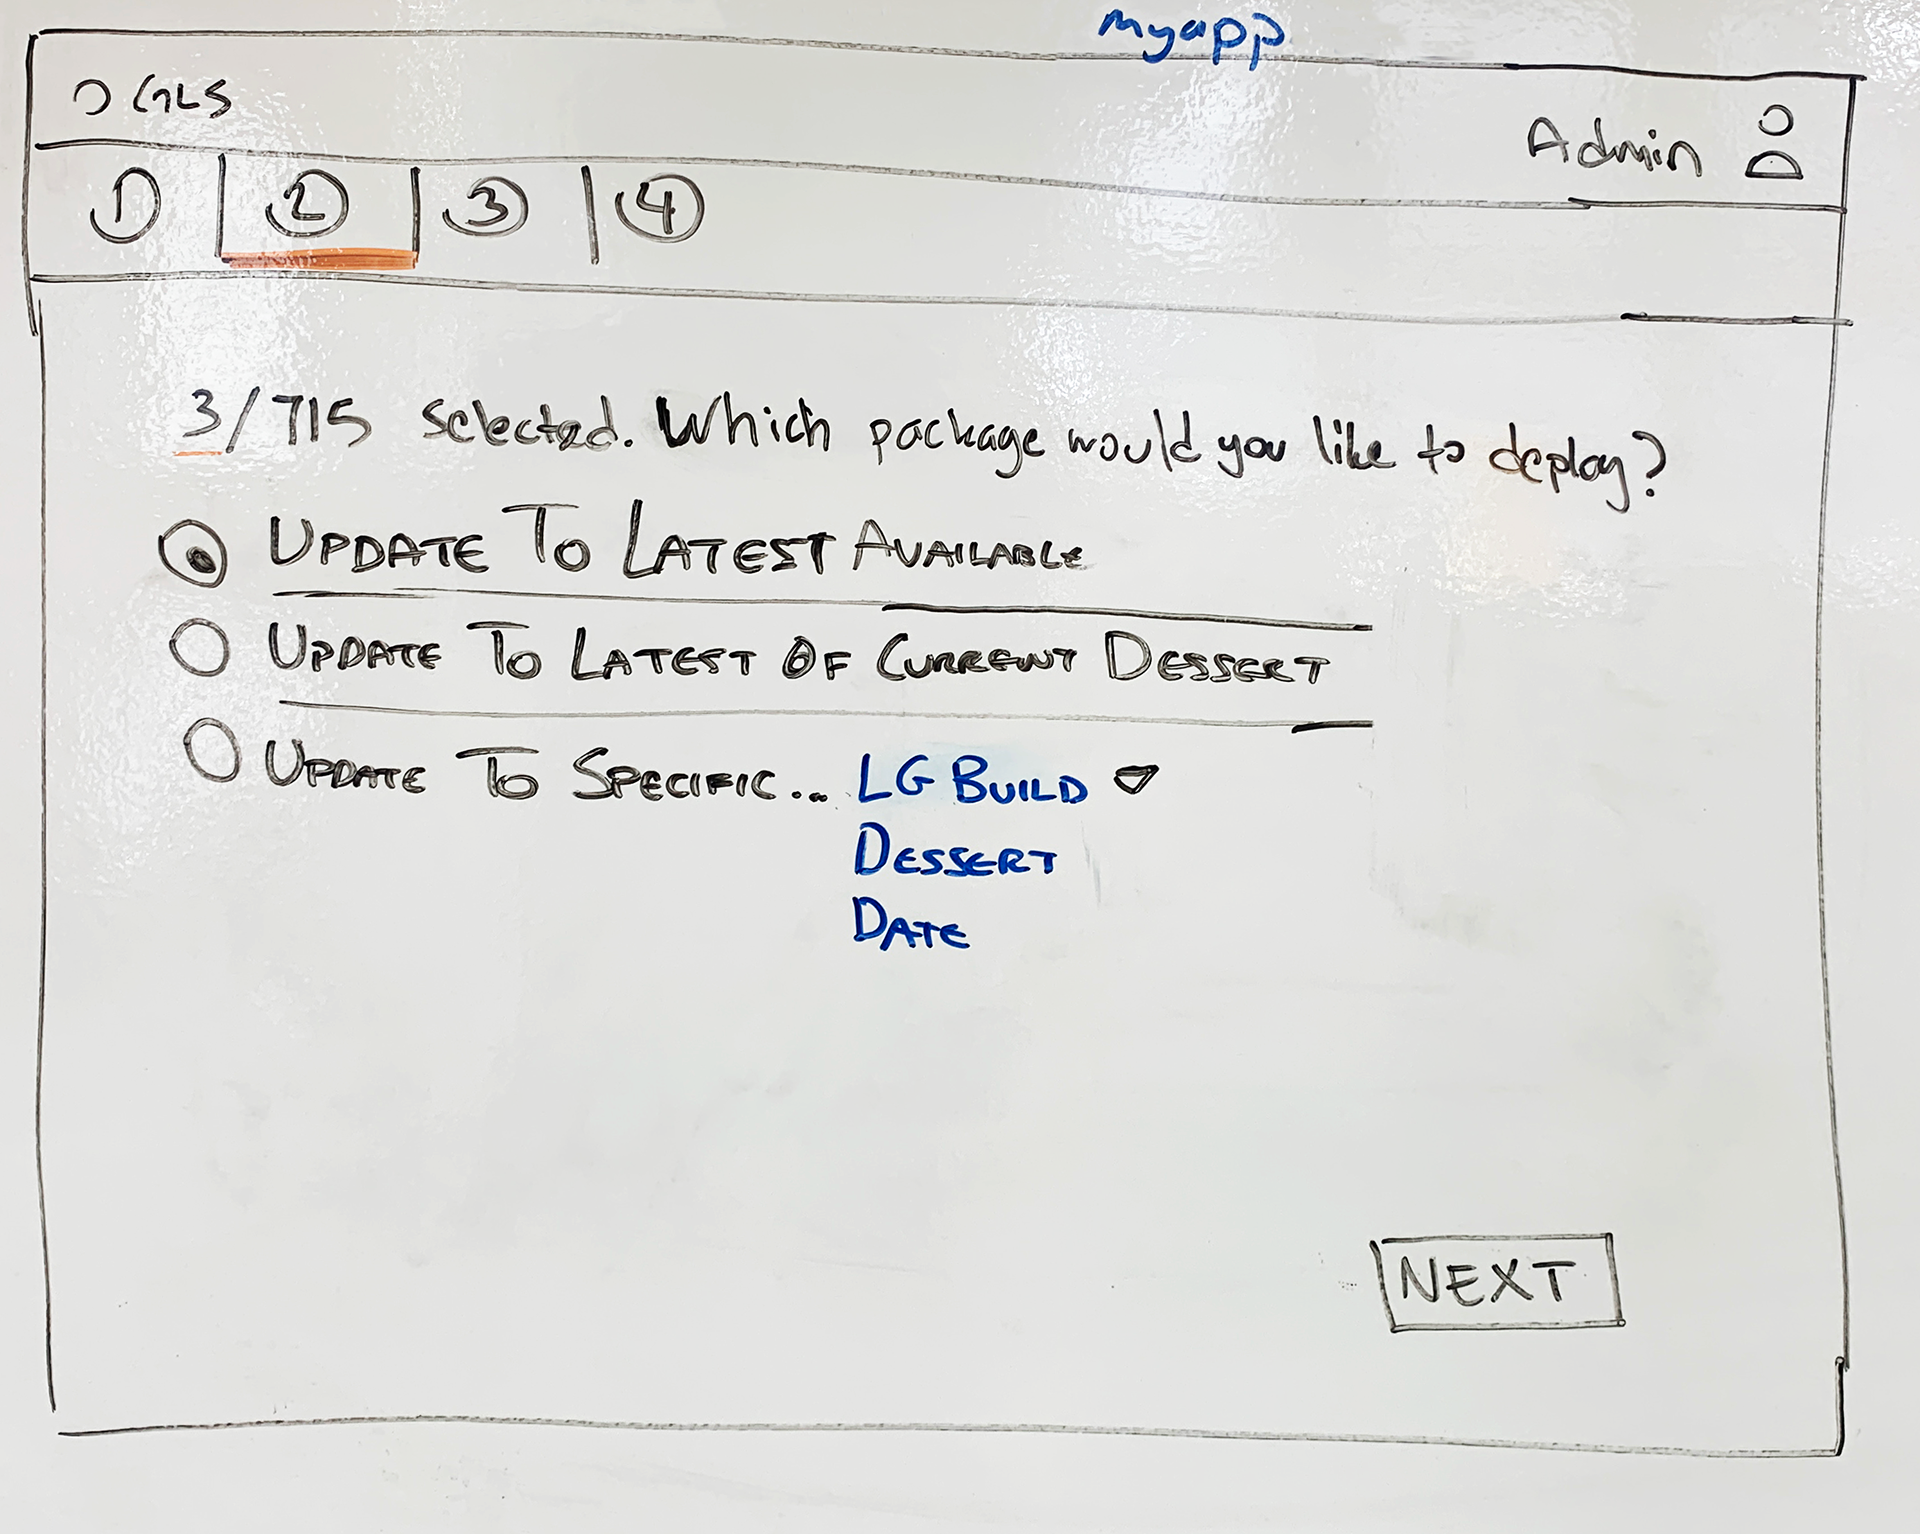 myapp
GLS
Admin
1 2 3 4
3/715 selected. Which package would you like to deploy?
UPDATE TO LATEST AVAILABLE
UPDATE TO LATEST OF CURRENT DESSERT
UPDATE TO SPECIFIC... LG BUILD
DESSERT
DATE
NEXT